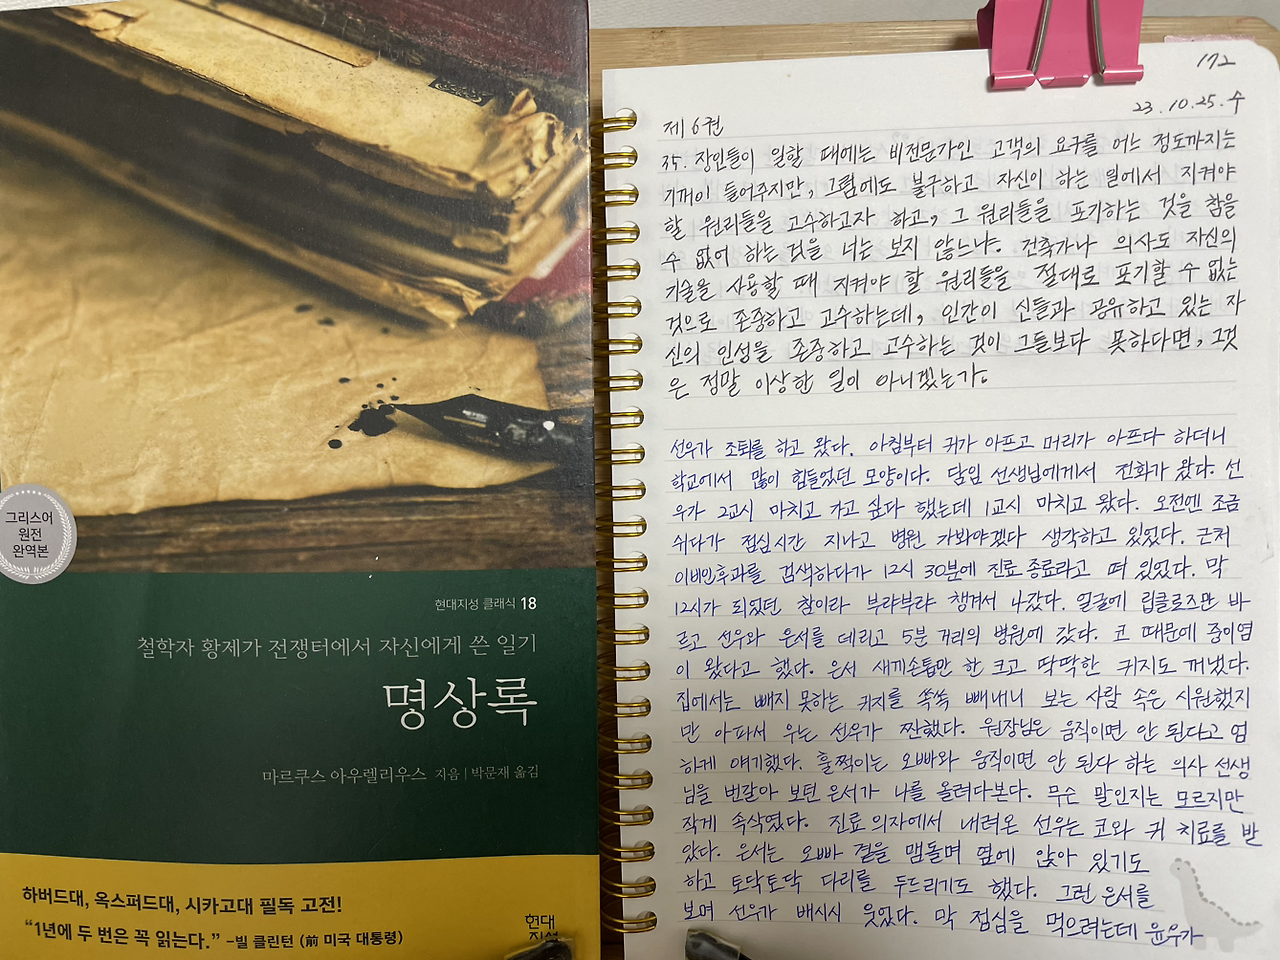 그리스어
원전
완역본
현대지성 클래식 18
철학자 황제가 전쟁터에서 자신에게 쓴 일기
명상록
마르쿠스 아우렐리우스 지음 | 박문재 옮김
하버드대, 옥스퍼드대, 시카고대 필독 고전!
“1년에 두 번은 꼭 읽는다.” –빌 클린턴 (前 미국 대통령)
현대
지성
172
23. 10. 25. 수
제 6권
35. 장인들이 일할 때에는 비전문가인 고객의 요구를 어느 정도까지는
기꺼이 들어주지만, 그럼에도 불구하고 자신이 하는 일에서 지켜야
할 원리들을 고수하고자 하고, 그 원리들을 포기하는 것을 참을
수 없어 하는 것을 너는 보지 않느냐. 건축가나 의사도 자신의
기술을 사용할 때 지켜야 할 원리들을 절대로 포기할 수 없는
것으로 존중하고 고수하는데, 인간이 신들과 공유하고 있는 자
신의 인성을 존중하고 고수하는 것이 그들보다 못하다면, 그것
은 정말 이상한 일이 아니겠는가.
선우가 조퇴를 하고 왔다. 아침부터 귀가 아프고 머리가 아프다 하더니
학교에서 많이 힘들었던 모양이다. 담임 선생님에게서 전화가 왔다. 선
우가 2교시 마치고 가고 싶다 했는데 1교시 마치고 왔다. 오전엔 조금
쉬다가 점심시간 지나고 병원 가봐야겠다 생각하고 있었다. 근처
이비인후과를 검색하다가 12시 30분에 진료 종료라고 떠 있었다. 막
12시가 되었던 참이라 부랴부랴 챙겨서 나갔다. 얼굴에 립클로즈만 바
르고 선우와 은서를 데리고 5분 거리의 병원에 갔다. 코 때문에 중이염
이 왔다고 했다. 은서 새끼손톱만 한 크고 딱딱한 귀지도 꺼냈다.
집에서는 빼지 못하는 귀지를 쏙쏙 빼내니 보는 사람 속은 시원했지
만 아파서 우는 선우가 짠했다. 원장님은 움직이면 안 된다고 엄
하게 얘기했다. 훌쩍이는 오빠와 움직이면 안 된다 하는 의사 선생
님을 번갈아 보던 은서가 나를 올려다본다. 무슨 말인지는 모르지만
작게 속삭였다. 진료 의자에서 내려온 선우는 코와 귀 치료를 받
았다. 은서는 오빠 곁을 맴돌며 옆에 앉아 있기도
하고 토닥토닥 다리를 두드리기도 했다. 그런 은서를
보며 선우가 배시시 웃었다. 막 점심을 먹으려는데 윤우가